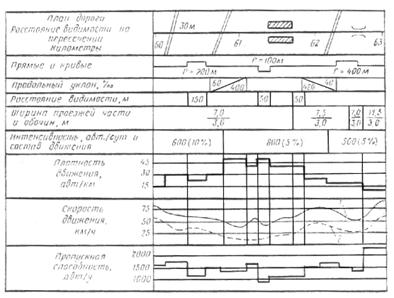 План дороги
Расстояние видимости на
пересечении
Километры
30м
60
61
62
63
Прямые и кривые
r=200м
r=100м
r=400м
Продольный уклон, ‰
60
400
40
Расстояние видимости, м
150
50
50
Ширина проезжей части
и обочин, м
7,0
3,0
7,5
3,0
7,0
3,0
3,0
Интенсивность, авт./сут и
состав движения
600 (10%)
800 (5%)
500 (5%)
Плотность
движения,
авт/км
45
30
15
Скорость
движения,
км/ч
75
50
25
Пропускная
способность,
авт/ч
2000
1500
1000